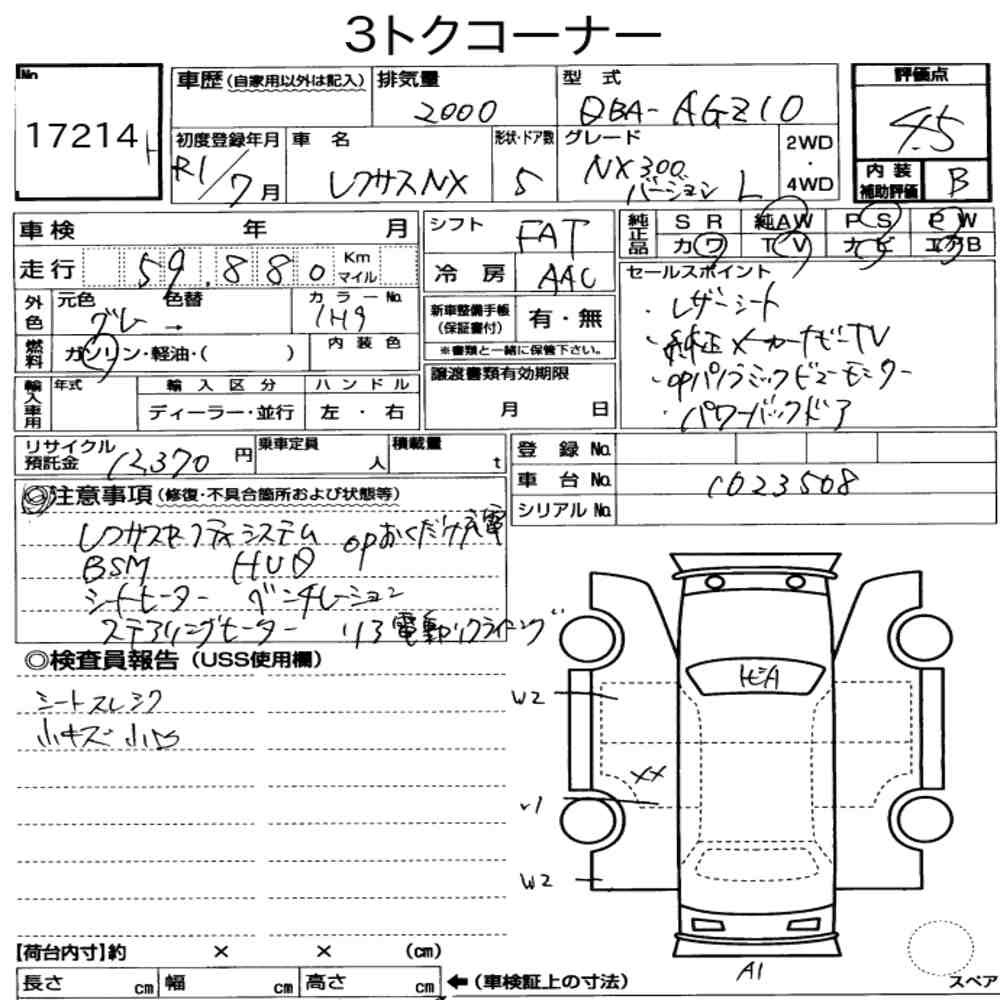 3トクコーナー
No.
17214
車歴(自家用以外は記入)
排気量
2000
型式
DBA-AGZ10
評価点
4.5
初度登録年月
R1/7月
車名
レクサスNX
形状・ドア数
5
グレード
NX300
バージョン L
2WD
・
4WD
内装
補助評価
B
車検 年 月
走行 59.880 Km
マイル
シフト
FAT
冷房
AAC
純正品
SR 純AW PS PW
カワ TV ナビ エアB
外色
元色 色替
グレー →
カラーNo.
1H9
内装色
燃料
ガソリン・軽油・( )
新車整備手帳
(保証書付)
有・無
※書類と一緒に保管下さい。
セールスポイント
・レザーシート
・純正メーカーナビTV
・opパノラミックビューモニター
・パワーバックドア
輸入車用
年式
輸入区分
ディーラー・並行
ハンドル
左・右
譲渡書類有効期限
月 日
リサイクル
預託金
12370 円
乗車定員
人
積載量
t
登録No.
車台No.
1023508
シリアルNo.
◎注意事項(修復・不具合箇所および状態等)
レクサスセーフティシステム opおくだけ充電
BSM HUD
シートヒーター ベンチレーション
ステアリングヒーター リヤ電動リクライニング
◎検査員報告(USS使用欄)
シートスレシワ
小キズ小凹
W2
XX
W2
A1
【荷台内寸】約 × × (cm)
長さ cm 幅 cm 高さ cm
←(車検証上の寸法)
スペア